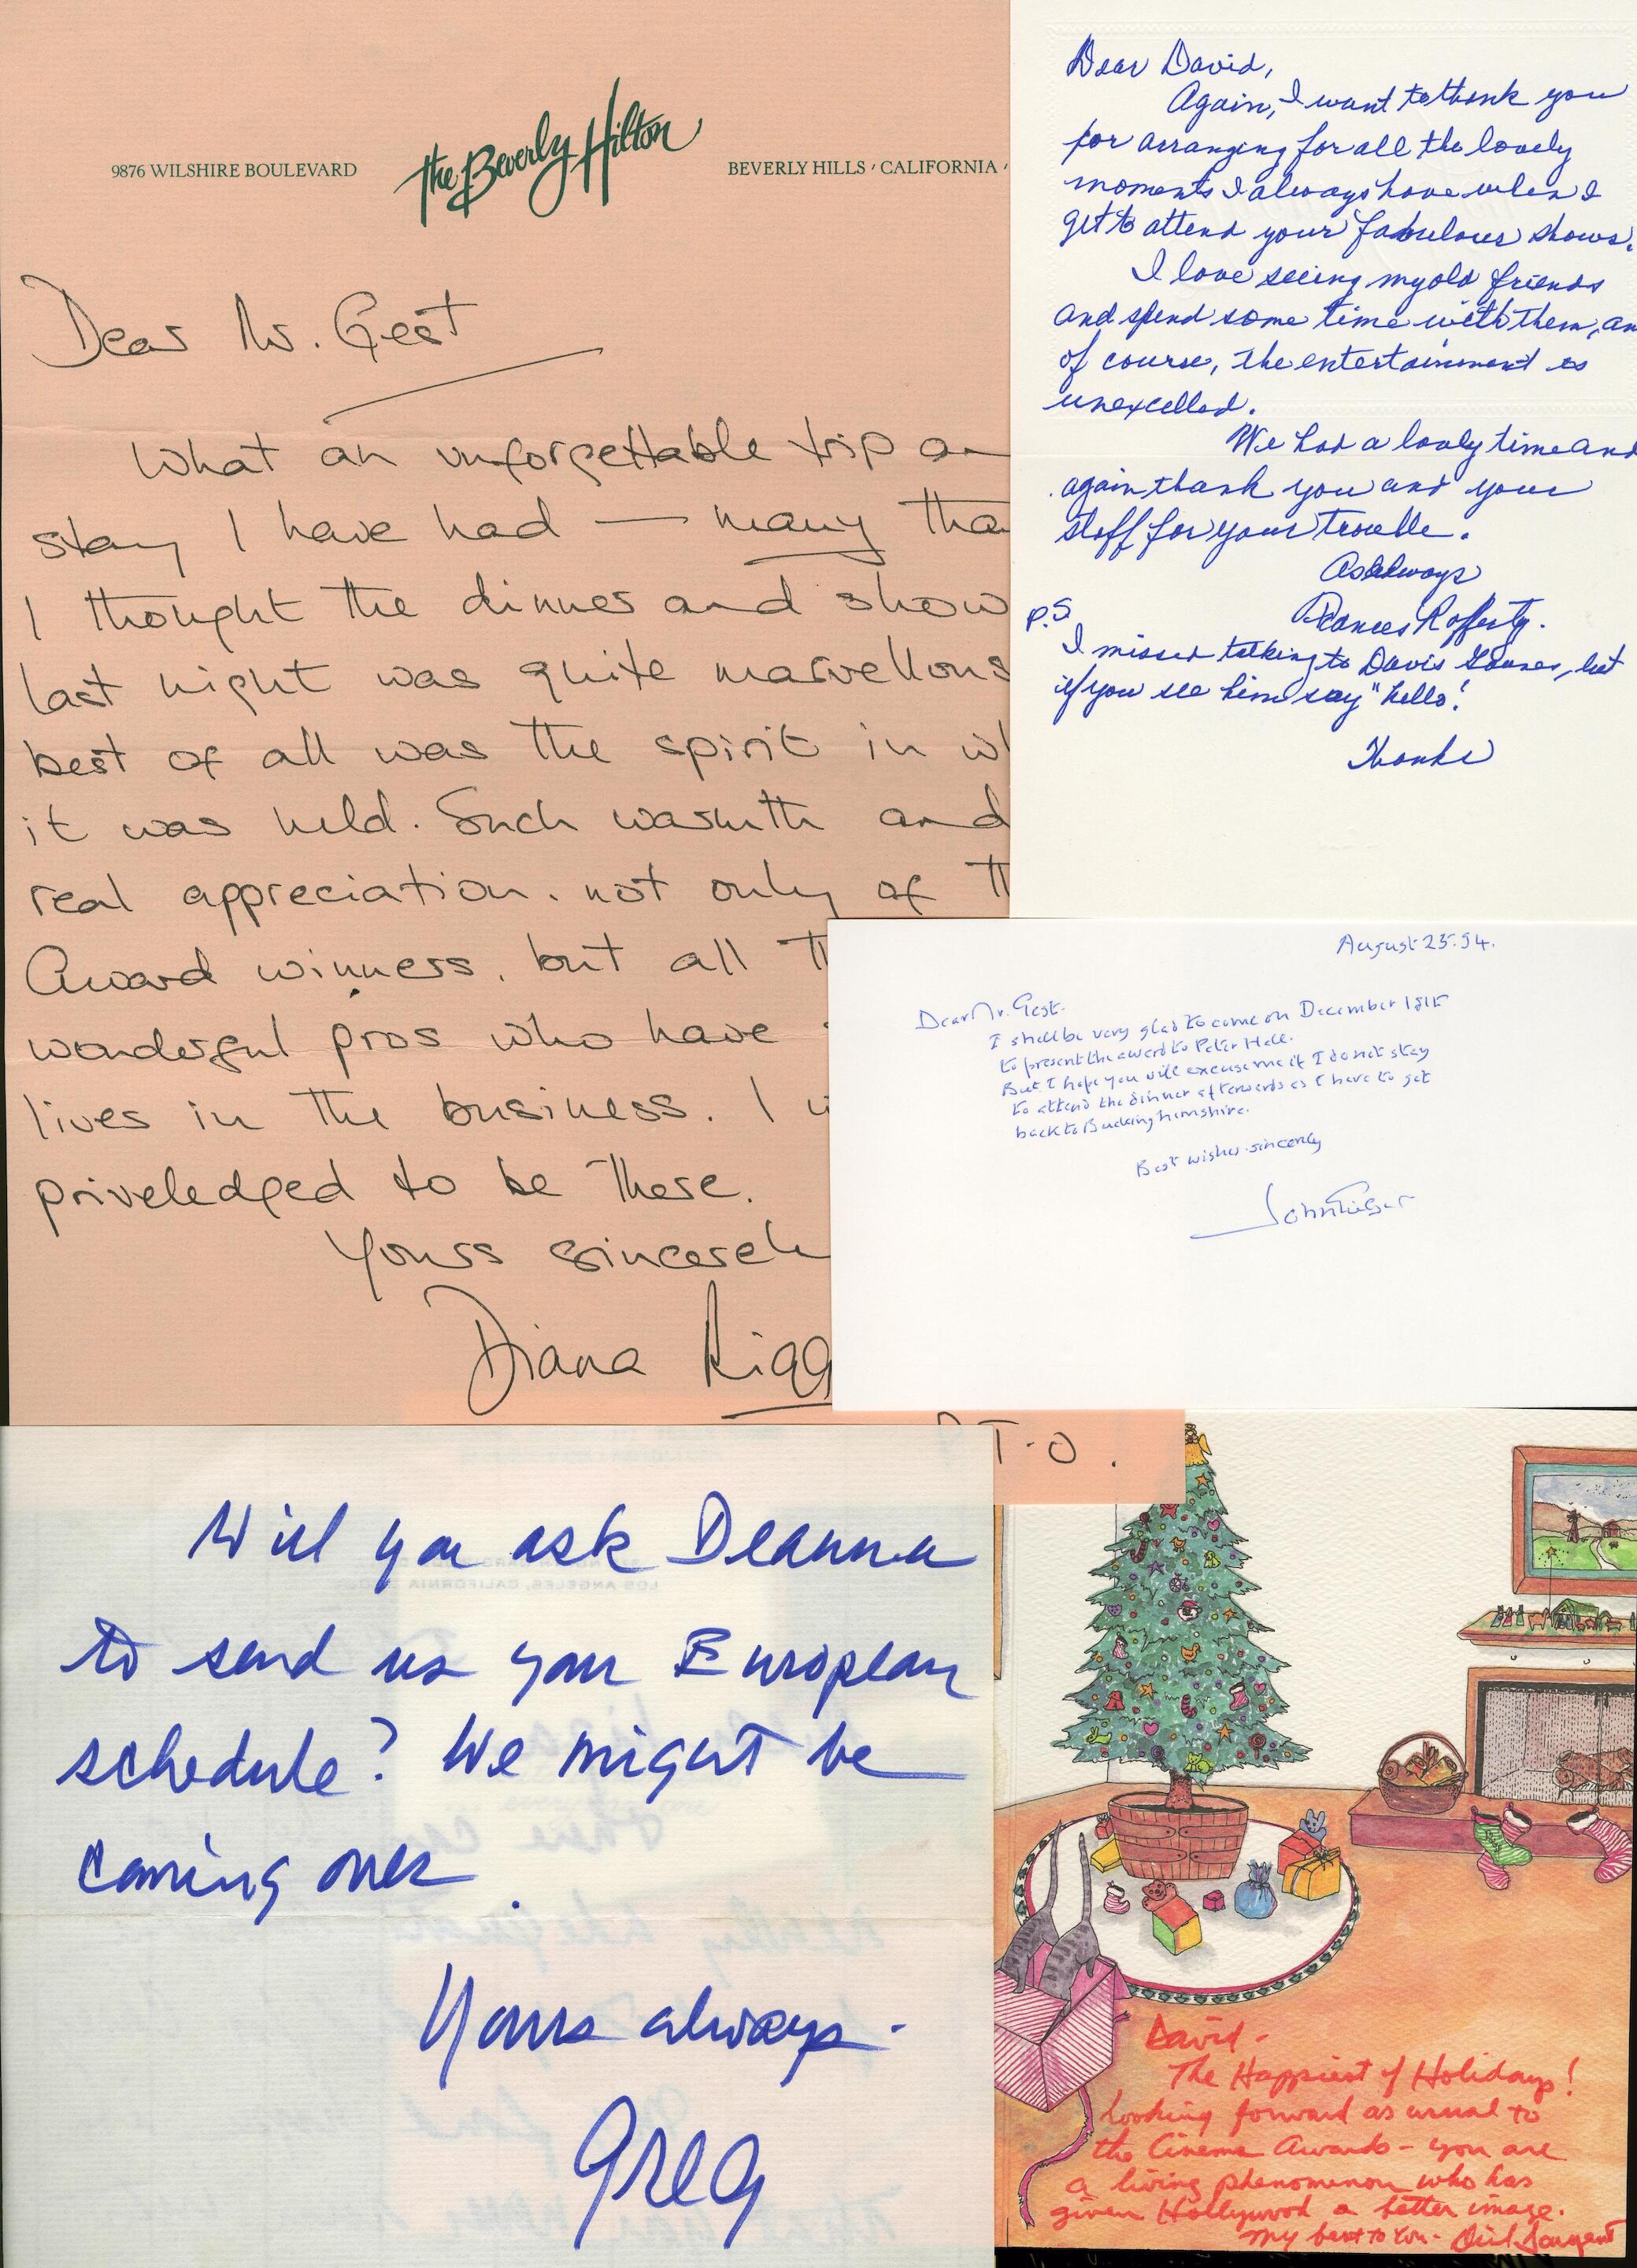 9876 WILSHIRE BOULEVARD
the Beverly Hilton
BEVERLY HILLS / CALIFORNIA /
Dear Mr. Gest
What an unforgettable trip an
stay I have had — many tha
I thought the dinner and show
last night was quite marvellous
best of all was the spirit in wh
it was held. Such warmth and
real appreciation. not only of th
Award winners. but all th
wonderful pros who have
lives in the business. I w
priveledged to be there.
Yours sincerel
Diana Rigg
P.T.O.
Dear David,
Again, I want to thank you
for arranging for all the lovely
moments I always have when I
get to attend your fabulous shows.
I love seeing my old friends
and spend some time with them, an
of course, the entertainment is
unexcelled.
We had a lovly time and
again thank you and your
staff for your trouble.
As Always
Frances Rafferty.
P.S
I missed talking to Davis, but
if you see him say "hello!
Thanks
August 25.94.
Dear Mr. Gest.
I shall be very glad to come on December 1st
to present the award to Peter Hall.
But I hope you will excuse me if I do not stay
to attend the dinner afterwards as I have to get
back to Buckinghamshire.
Best wishes sincerely
John Gielgud
Will you ask Deanna
to send us your European
schedule? We might be
coming over.
Yours always -
Greg
LOS ANGELES, CALIFORNIA
David -
The Happiest of Holidays!
Looking forward as usual to
the Cinema Awards - you are
a living phenomenon who has
given Hollywood a better image.
My best to You - Dick Sargent